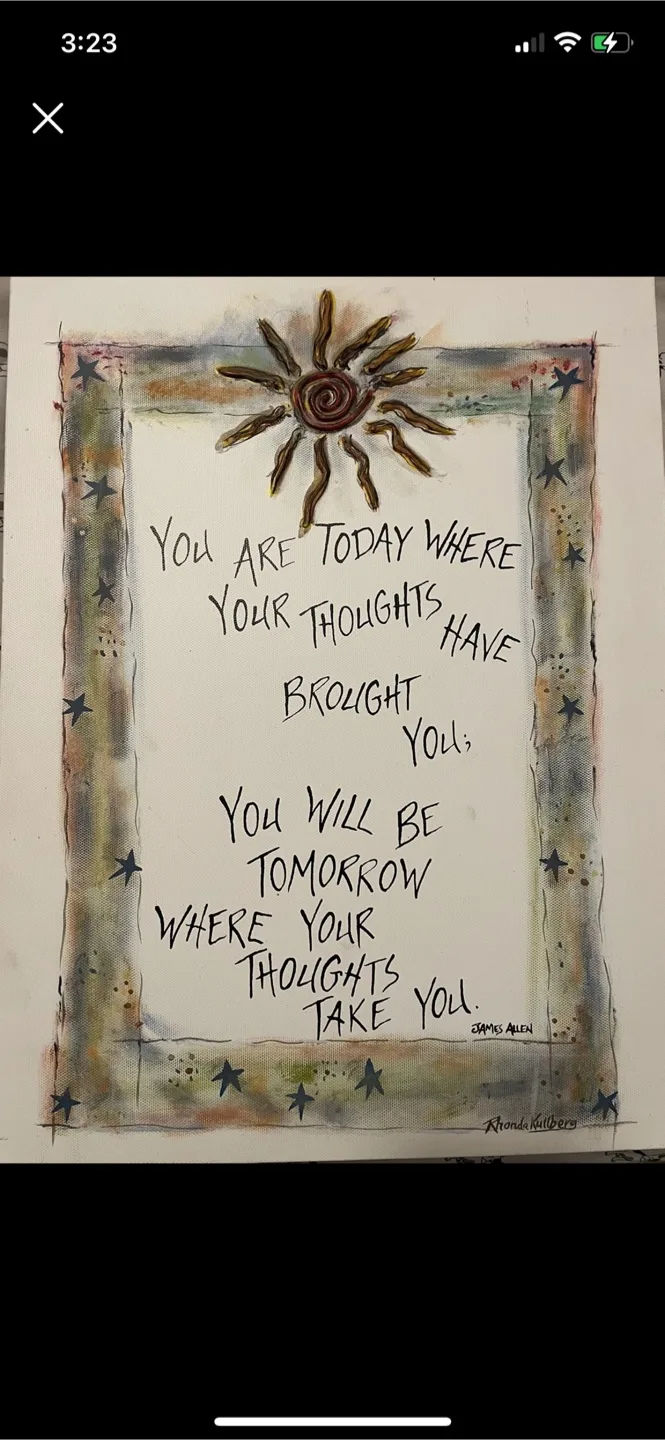 3:23
YOU ARE TODAY WHERE
YOUR THOUGHTS HAVE
BROUGHT
YOU;
YOU WILL BE
TOMORROW
WHERE YOUR
THOUGHTS
TAKE YOU.
JAMES ALLEN
Rhonda Kullberg